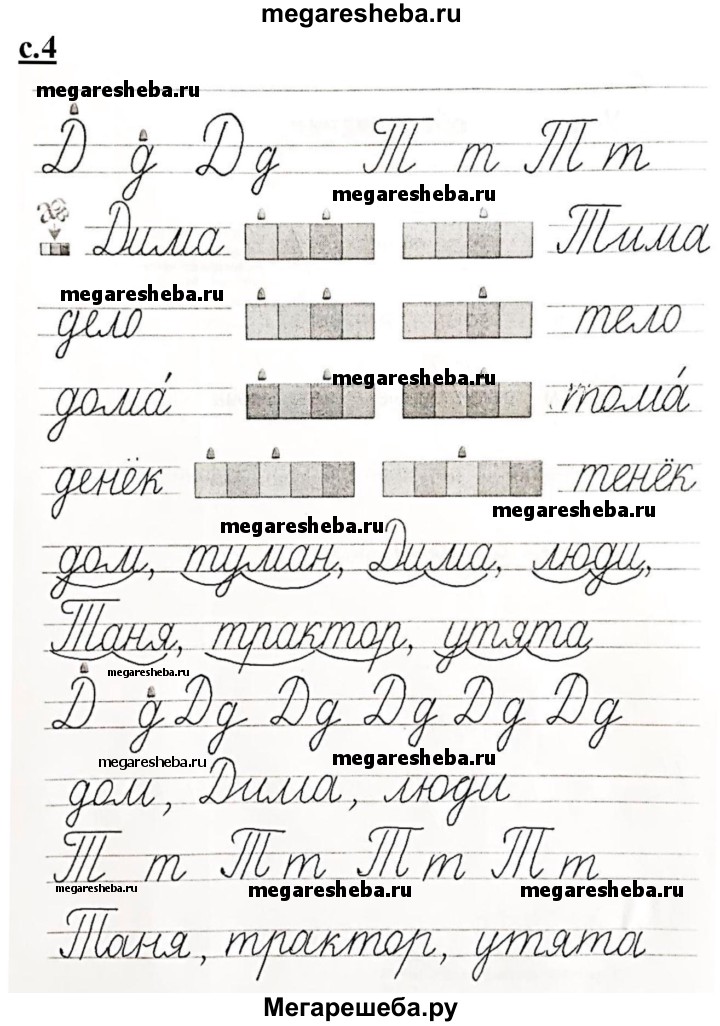 megaresheba.ru
с.4
megaresheba.ru
Д д Дд Т т Т т
megaresheba.ru
Дима Тима
megaresheba.ru
дело тело
megaresheba.ru
дома́ тома́
денёк тенёк
megaresheba.ru
megaresheba.ru
дом, туман, Дима, люди,
Таня, трактор, утята
megaresheba.ru
Д д Дд Дд Дд Дд Дд
megaresheba.ru megaresheba.ru
дом, Дима, люди
Т т Т т Т т Т т
megaresheba.ru megaresheba.ru megaresheba.ru
Таня, трактор, утята
Мегарешеба.ру